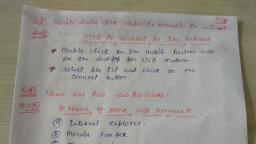 Write down the steps to connect to internet.
Steps to connect to the internet
* Double click on the mobile Partner icon
on the desktop for USB modem
* select the ISP and click on the
Connect button.
Name any five web browsers.
* Name of some web browsers *
Internet explorer.
Mozilla Firefox